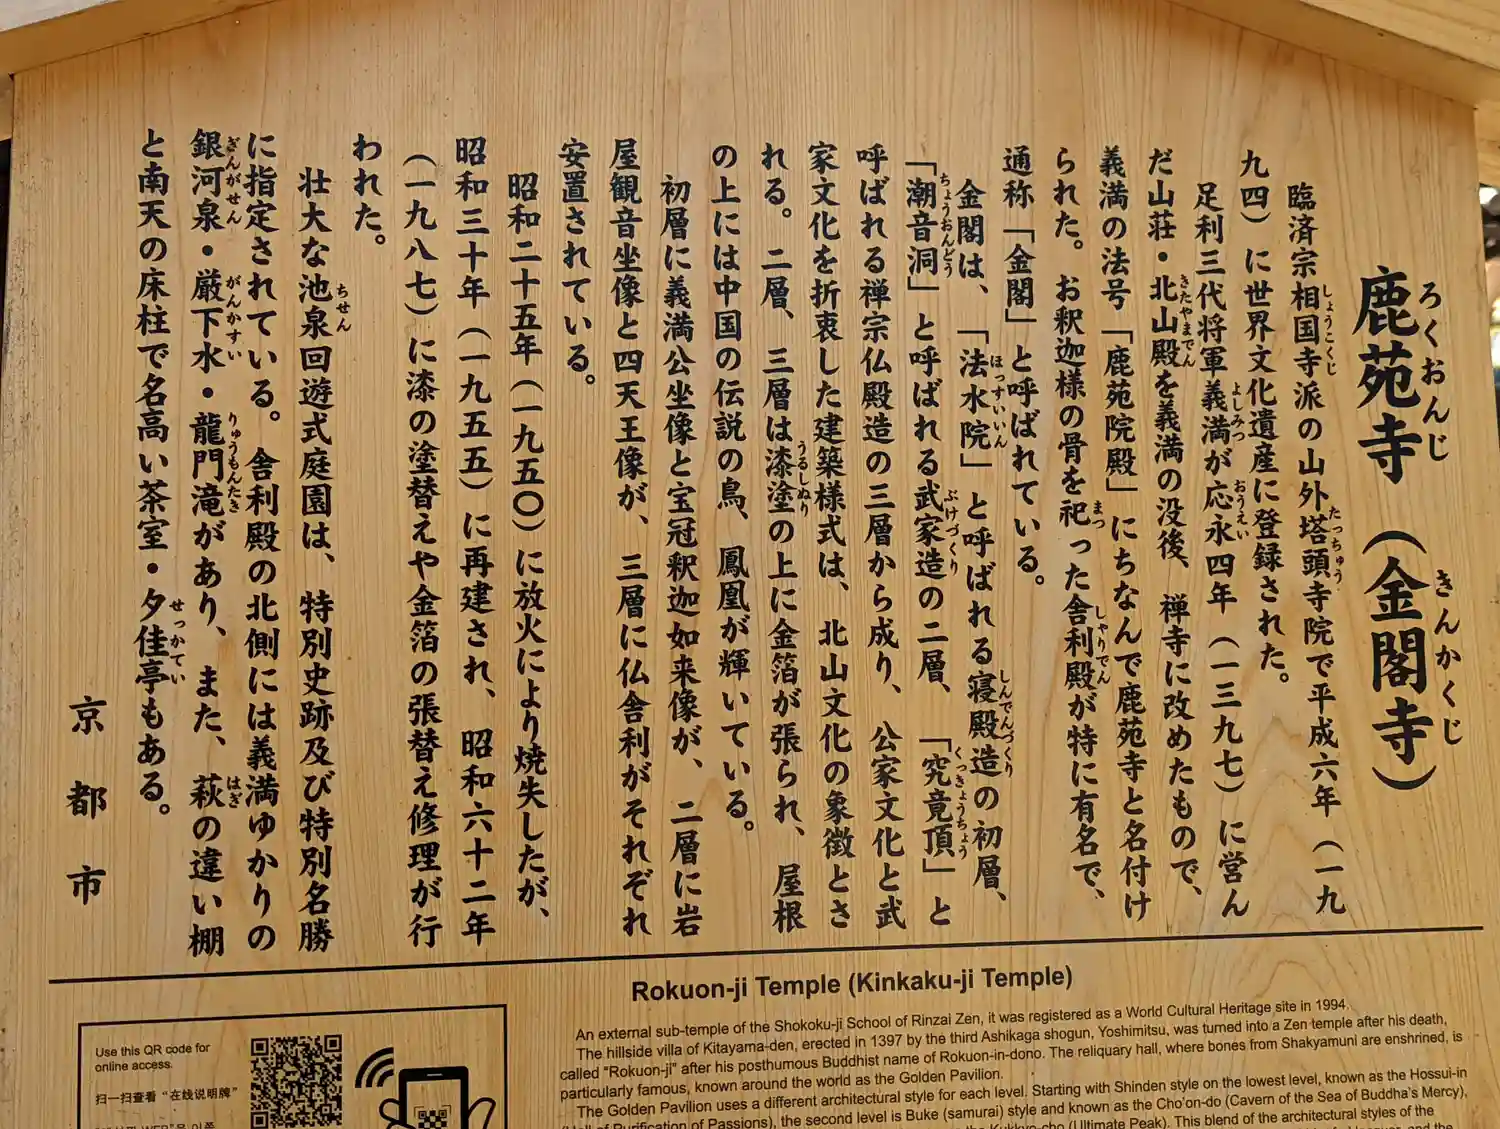 鹿苑寺（金閣寺）
ろくおんじ きんかくじ
臨済宗相国寺派の山外塔頭寺院で平成六年（一九
しょうこくじ たっちゅう
九四）に世界文化遺産に登録された。
足利三代将軍義満が応永四年（一三九七）に営ん
よしみつ おうえい
だ山荘・北山殿を義満の没後、禅寺に改めたもので、
きたやまでん
義満の法号「鹿苑院殿」にちなんで鹿苑寺と名付け
られた。お釈迦様の骨を祀った舎利殿が特に有名で、
まつ しゃりでん
通称「金閣」と呼ばれている。
金閣は、「法水院」と呼ばれる寝殿造の初層、
ほっすいいん しんでんづくり
「潮音洞」と呼ばれる武家造の二層、「究竟頂」と
ちょうおんどう ぶけづくり くっきょうちょう
呼ばれる禅宗仏殿造の三層から成り、公家文化と武
家文化を折衷した建築様式は、北山文化の象徴とさ
れる。二層、三層は漆塗の上に金箔が張られ、屋根
うるしぬり
の上には中国の伝説の鳥、鳳凰が輝いている。
初層に義満公坐像と宝冠釈迦如来像が、二層に岩
屋観音坐像と四天王像が、三層に仏舎利がそれぞれ
安置されている。
昭和二十五年（一九五〇）に放火により焼失したが、
昭和三十年（一九五五）に再建され、昭和六十二年
（一九八七）に漆の塗替えや金箔の張替え修理が行
われた。
壮大な池泉回遊式庭園は、特別史跡及び特別名勝
ちせん
に指定されている。舎利殿の北側には義満ゆかりの
銀河泉・厳下水・龍門滝があり、また、萩の違い棚
ぎんがせん がんかすい りゅうもんたき はぎ
と南天の床柱で名高い茶室・夕佳亭もある。
せっかてい
京都市
Rokuon-ji Temple (Kinkaku-ji Temple)
An external sub-temple of the Shokoku-ji School of Rinzai Zen, it was registered as a World Cultural Heritage site in 1994.
The hillside villa of Kitayama-den, erected in 1397 by the third Ashikaga shogun, Yoshimitsu, was turned into a Zen temple after his death,
called "Rokuon-ji" after his posthumous Buddhist name of Rokuon-in-dono. The reliquary hall, where bones from Shakyamuni are enshrined, is
particularly famous, known around the world as the Golden Pavilion.
The Golden Pavilion uses a different architectural style for each level. Starting with Shinden style on the lowest level, known as the Hossui-in
(Hall of Purification of Passions), the second level is Buke (samurai) style and known as the Cho'on-do (Cavern of the Sea of Buddha's Mercy),
(Ultimate Peak). This blend of the architectural styles of the
Use this QR code for
online access.
扫一扫查看“在线说明牌”